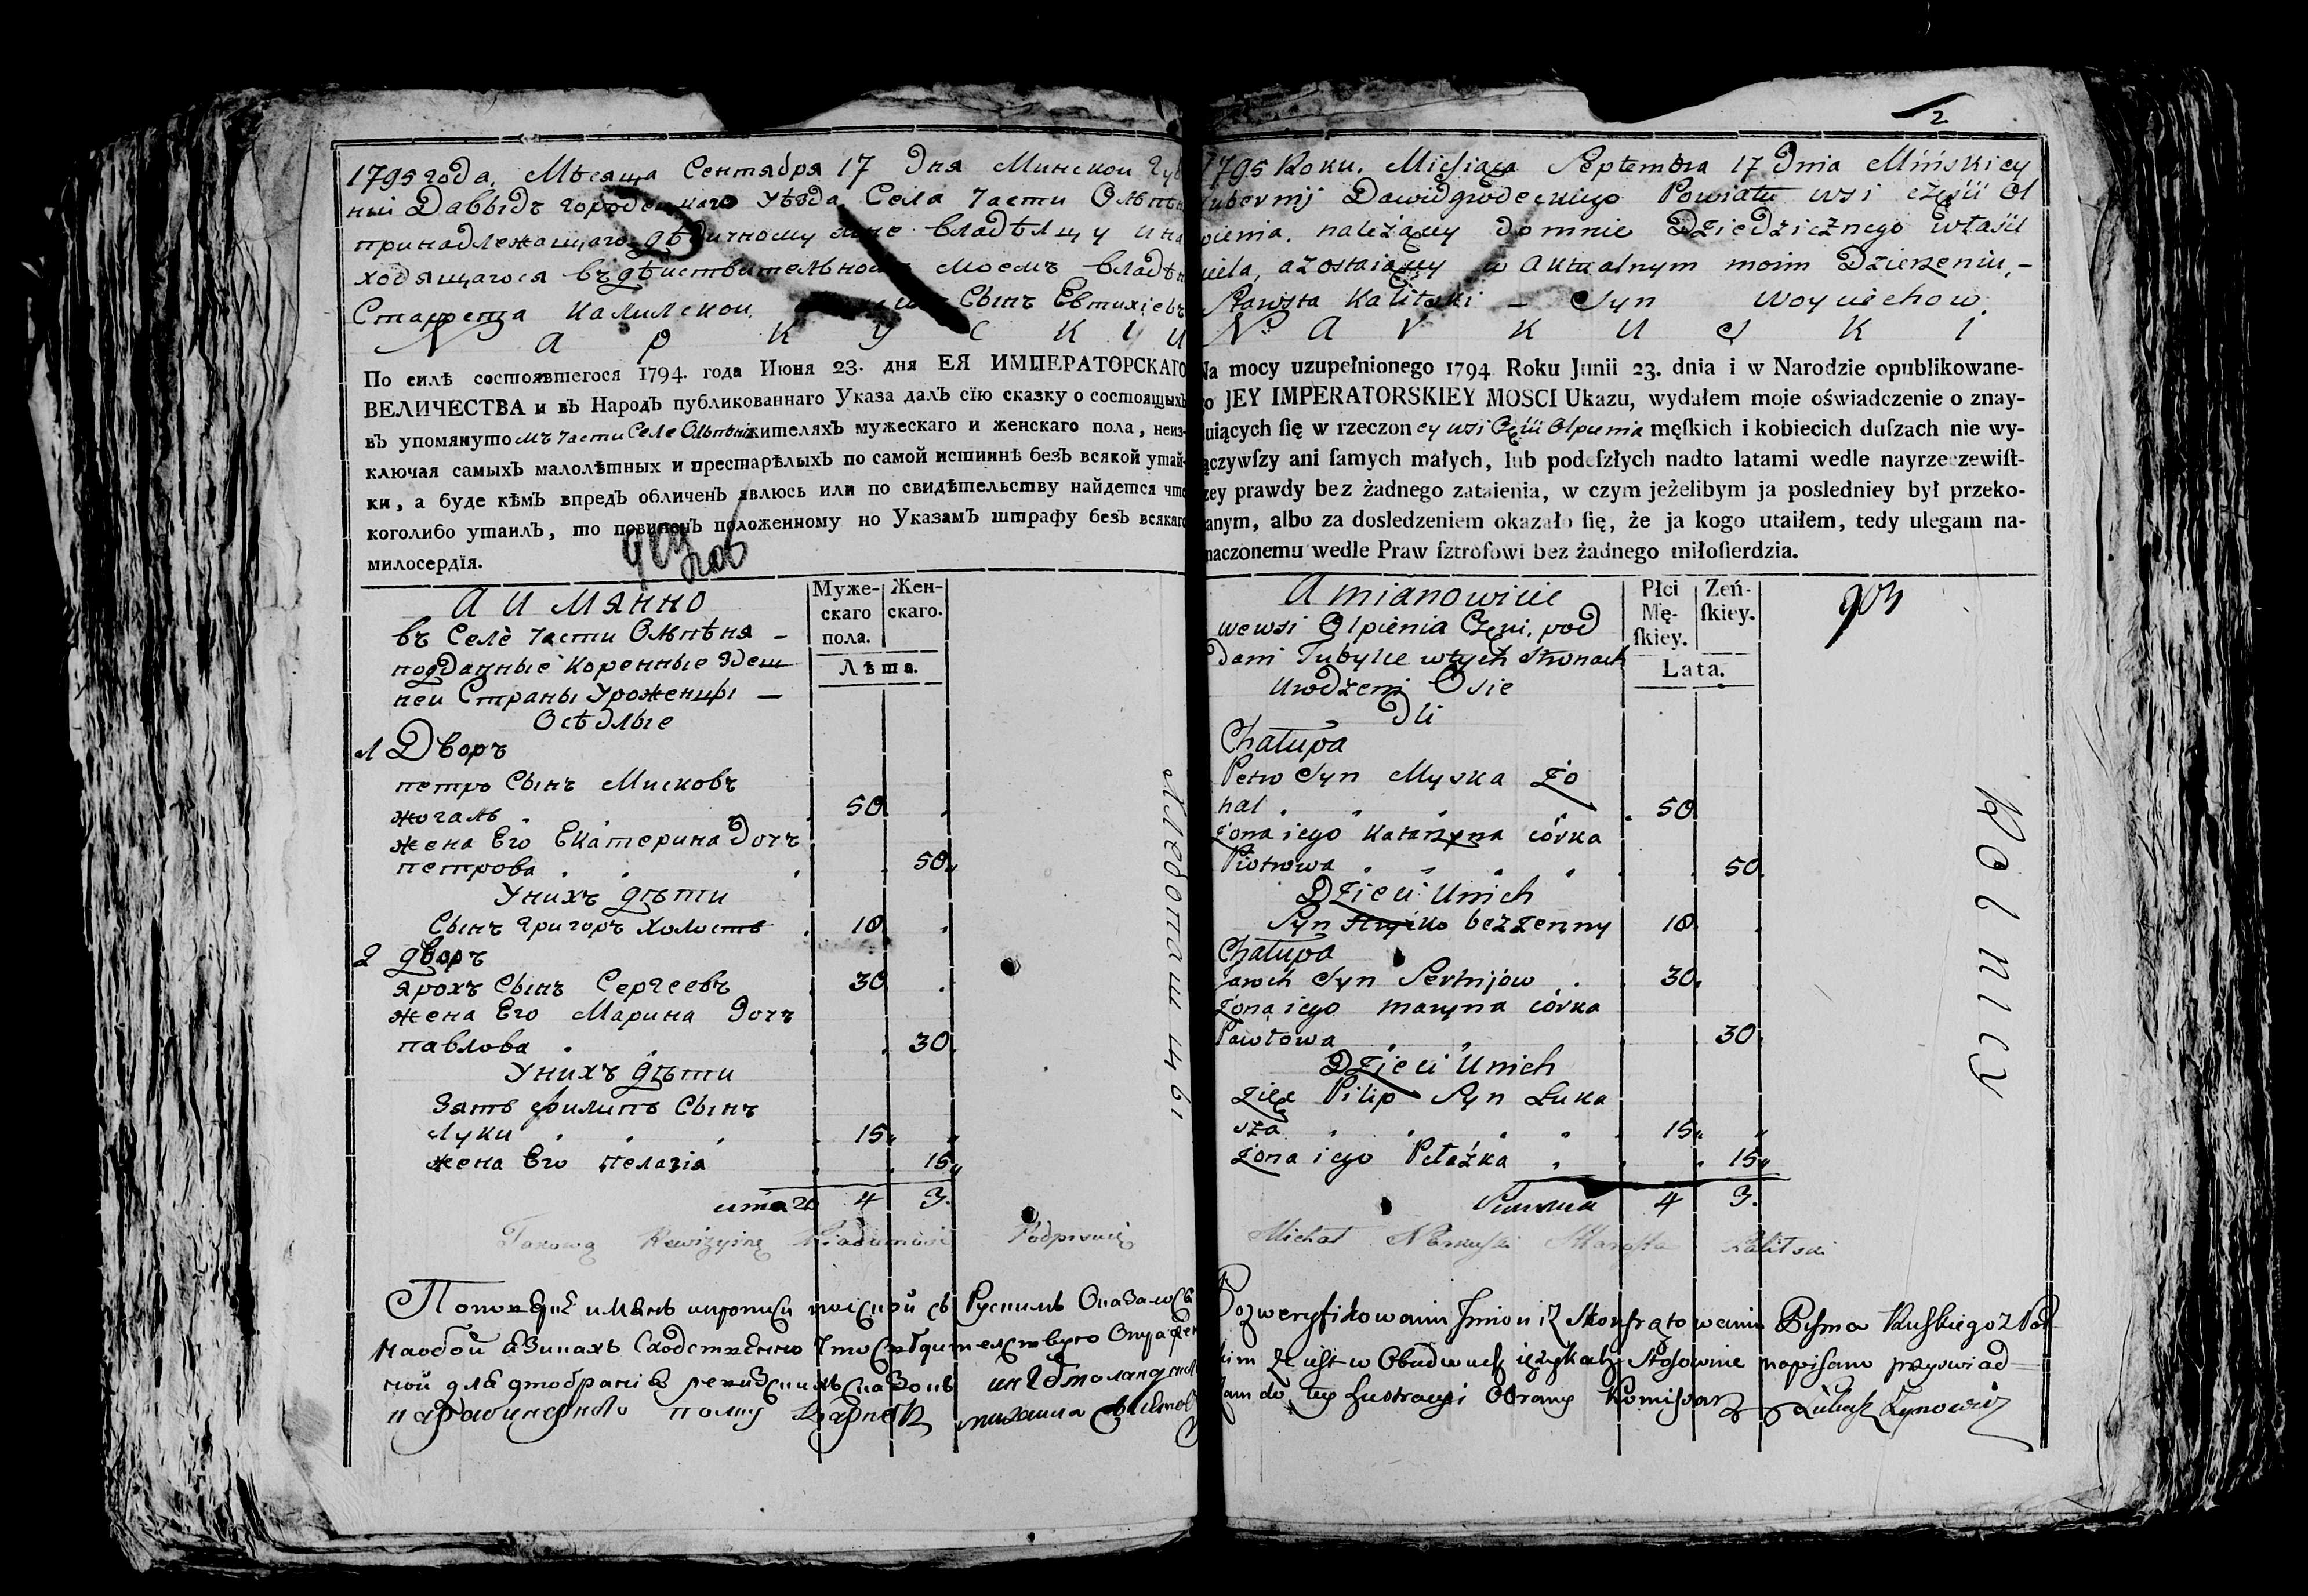 1795 года. Мѣсяца Сентября 17 дня Минской Губ
ніи Давыдъ городецкаго уѣзда Села части Ольпѣн
принадлежащаго дѣдичному мне владѣлцу и на
ходящагося въ дѣиствительномъ моемъ владѣн
Староста Калилской Сынъ Евтихіевъ
Наркускіи
По силѣ состоявшегося 1794. года Июня 23. дня ЕЯ ИМПЕРАТОРСКАГО
ВЕЛИЧЕСТВА и въ Народъ публикованнаго Указа далъ сїю сказку о состоящыхъ
въ упомянутомъ части Селе Ольпѣни жителяхъ мужескаго и женскаго пола, неиз-
ключая самыхъ малолѣтныхъ и престарѣлыхъ по самой истиннѣ безъ всякой утай-
ки, а буде кѣмъ впредъ обличенъ явлюсь или по свидѣтельству найдется что
коголибо утаилъ, то повиненъ положенному по Указамъ штрафу безъ всякаго
милосердїя.
А имянно
въ Селѣ части Ольпѣня –
подданные коренные здеш
неи Страны уроженцы –
Осѣдлые
Муже-
скаго
пола.
Жен-
скаго.
Лѣта.
1 Дворъ
петръ Сынъ Мисковъ
жогаль 50
жена Его Екатерина дочъ
петрова 50
У нихъ дѣти
Сынъ Григоръ холостъ 10
2 дворъ
ярохъ Сынъ Сергеевъ 30
жена Его Марина дочъ
павлова 30
У нихъ дѣти
Зять филипъ Сынъ
Луки 15
жена Его пелагія 15
итаго 4 3.
Takową Rewizyiną Wiadomość Podpisuię
2
1795 Roku. Miesiąca Septembra 17 Dnia Mińskiey
Gubernij Dawidgrodeckiego Powiatu wsi części Ol
pienia. należący do mnie Dziedzicznego właści
ciela, a zostaiący w aktualnym moim Dzierzeniu, –
Starosta Kalitski – Syn Woyciechow
Narkuski
Na mocy uzupełnionego 1794 Roku Junii 23. dnia i w Narodzie opublikowane-
go JEY IMPERATORSKIEY MOSCI Ukazu, wydałem moie oświadczenie o znay-
duiących ſię w rzeczoney wsi Części Olpienia męſkich i kobiecich duſzach nie wy-
ączywſzy ani ſamych małych, lub podeſzłych nadto latami wedle nayrzeczewiſt-
zey prawdy bez żadnego zataienia, w czym jeżelibym ja posledniey był przeko-
anym, albo za dosledzeniem okazało ſię, że ja kogo utaiłem, tedy ulegam na-
naczonemu wedle Praw ſztroſowi bez żadnego miłoſierdzia.
A mianowicie
we wsi Olpienia Części. pod
dani Tubylce w tych stronach
urodzeni Osie
dli
Płci
Mę-
ſkiey.
Zeń-
ſkiey.
Lata.
Chałupa
Petro Syn Myska Żo
hal 50
Żona iego Katarzyna córka
Piotrowa 50
Dzieci u nich
Syn Hryćko bezżenny 10
Chałupa
Jaroch Syn Serhijow 30
Żona iego Maryna córka
Pawłowa 30
Dzieci u nich
Zięć Pilip Syn Łuka
sza 15
Żona iego Pełażka 15
Summa 4 3.
Michał Narkuski Starosta Kalitski
Rolnicy
Pozweryfikowaniu Imion i Skonfrątowaniu Pisma Ruskiego z Pol
skim iż iest w Obudwuch językach Stosownie napisano przyswiad
czam do tey Lustracyi Obrany Komisarz